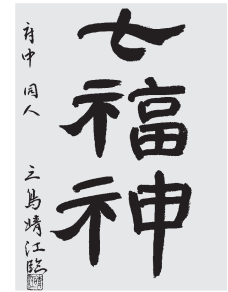 七福神
府中 同人 三島靖江臨